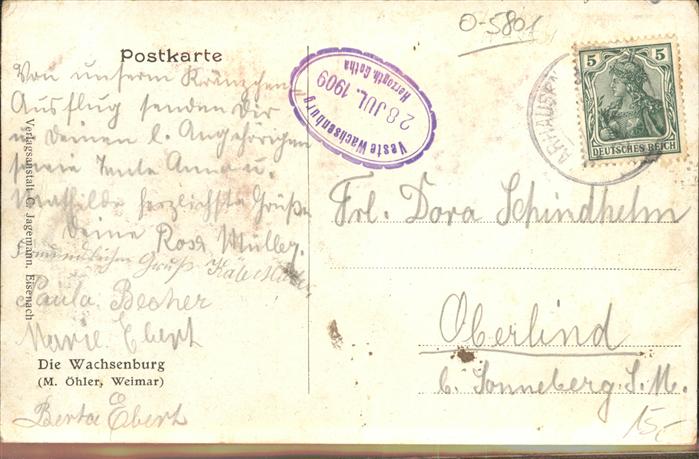 O-5801
Postkarte
Von unserm Kränzchen
Ausflug senden Dir
u. Deinen l. Angehörigen
sowie Tante Anna u.
Mathilde herzlichste Grüße
Deine Rosa Müller.
Freundlichen Gruß Käte
Paula Becher
Marie Ebert
Die Wachsenburg
(M. Öhler, Weimar)
Berta Ebert
Verlagsanstalt C. Jagemann, Eisenach
Veste Wachsenburg
28 JUL. 1909
Herzogth. Gotha
5 5
DEUTSCHES REICH
Frl. Dora Schindhelm
Oberlind
b. Sonneberg S. M.
15,-